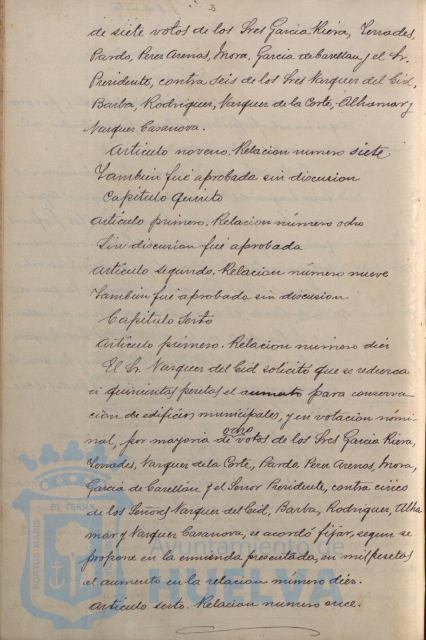 de siete votos de los Sres Garcia Riera, Terrades,
Pardo, Perez Arenas, Mora, Garcia de Carellan y el Sr.
Presidente, contra seis de los Sres Vazquez del Cid,
Barba, Rodriguez, Vazquez de la Corte, Alhamar y
Vazquez Casanova.
Articulo noveno. Relacion numero siete
Tambien fué aprobada sin discusion
Capitulo Quinto
Articulo primero. Relacion número ocho
Sin discusion fué aprobada
Articulo segundo. Relacion número nueve
Tambien fué aprobada sin discusion
Capitulo Sesto
Articulo primero. Relacion numero diez
El Sr. Vazquez del Cid solicitó que se reduzca
á quinientas pesetas el aumento para conserva
cion de edificios municipales, y en votacion nómi-
nal, por mayoria de ocho votos de los Sres Garcia Riera,
Terrades, Vazquez de la Corte, Pardo Perez Arenas, Mora,
Garcia de Carellan y el Señor Presidente, contra cinco
de los Señores Vazquez del Cid, Barba, Rodriguez, Alha
mar y Vazquez Casanova, se acordó fijar, segun se
propone en la enmienda presentada, en mil pesetas
el aumento en la relacion número diez.
Articulo sesto. Relacion numero once.
PORTUS MARIS ET TERRAE
Ayuntamiento de
HUELVA